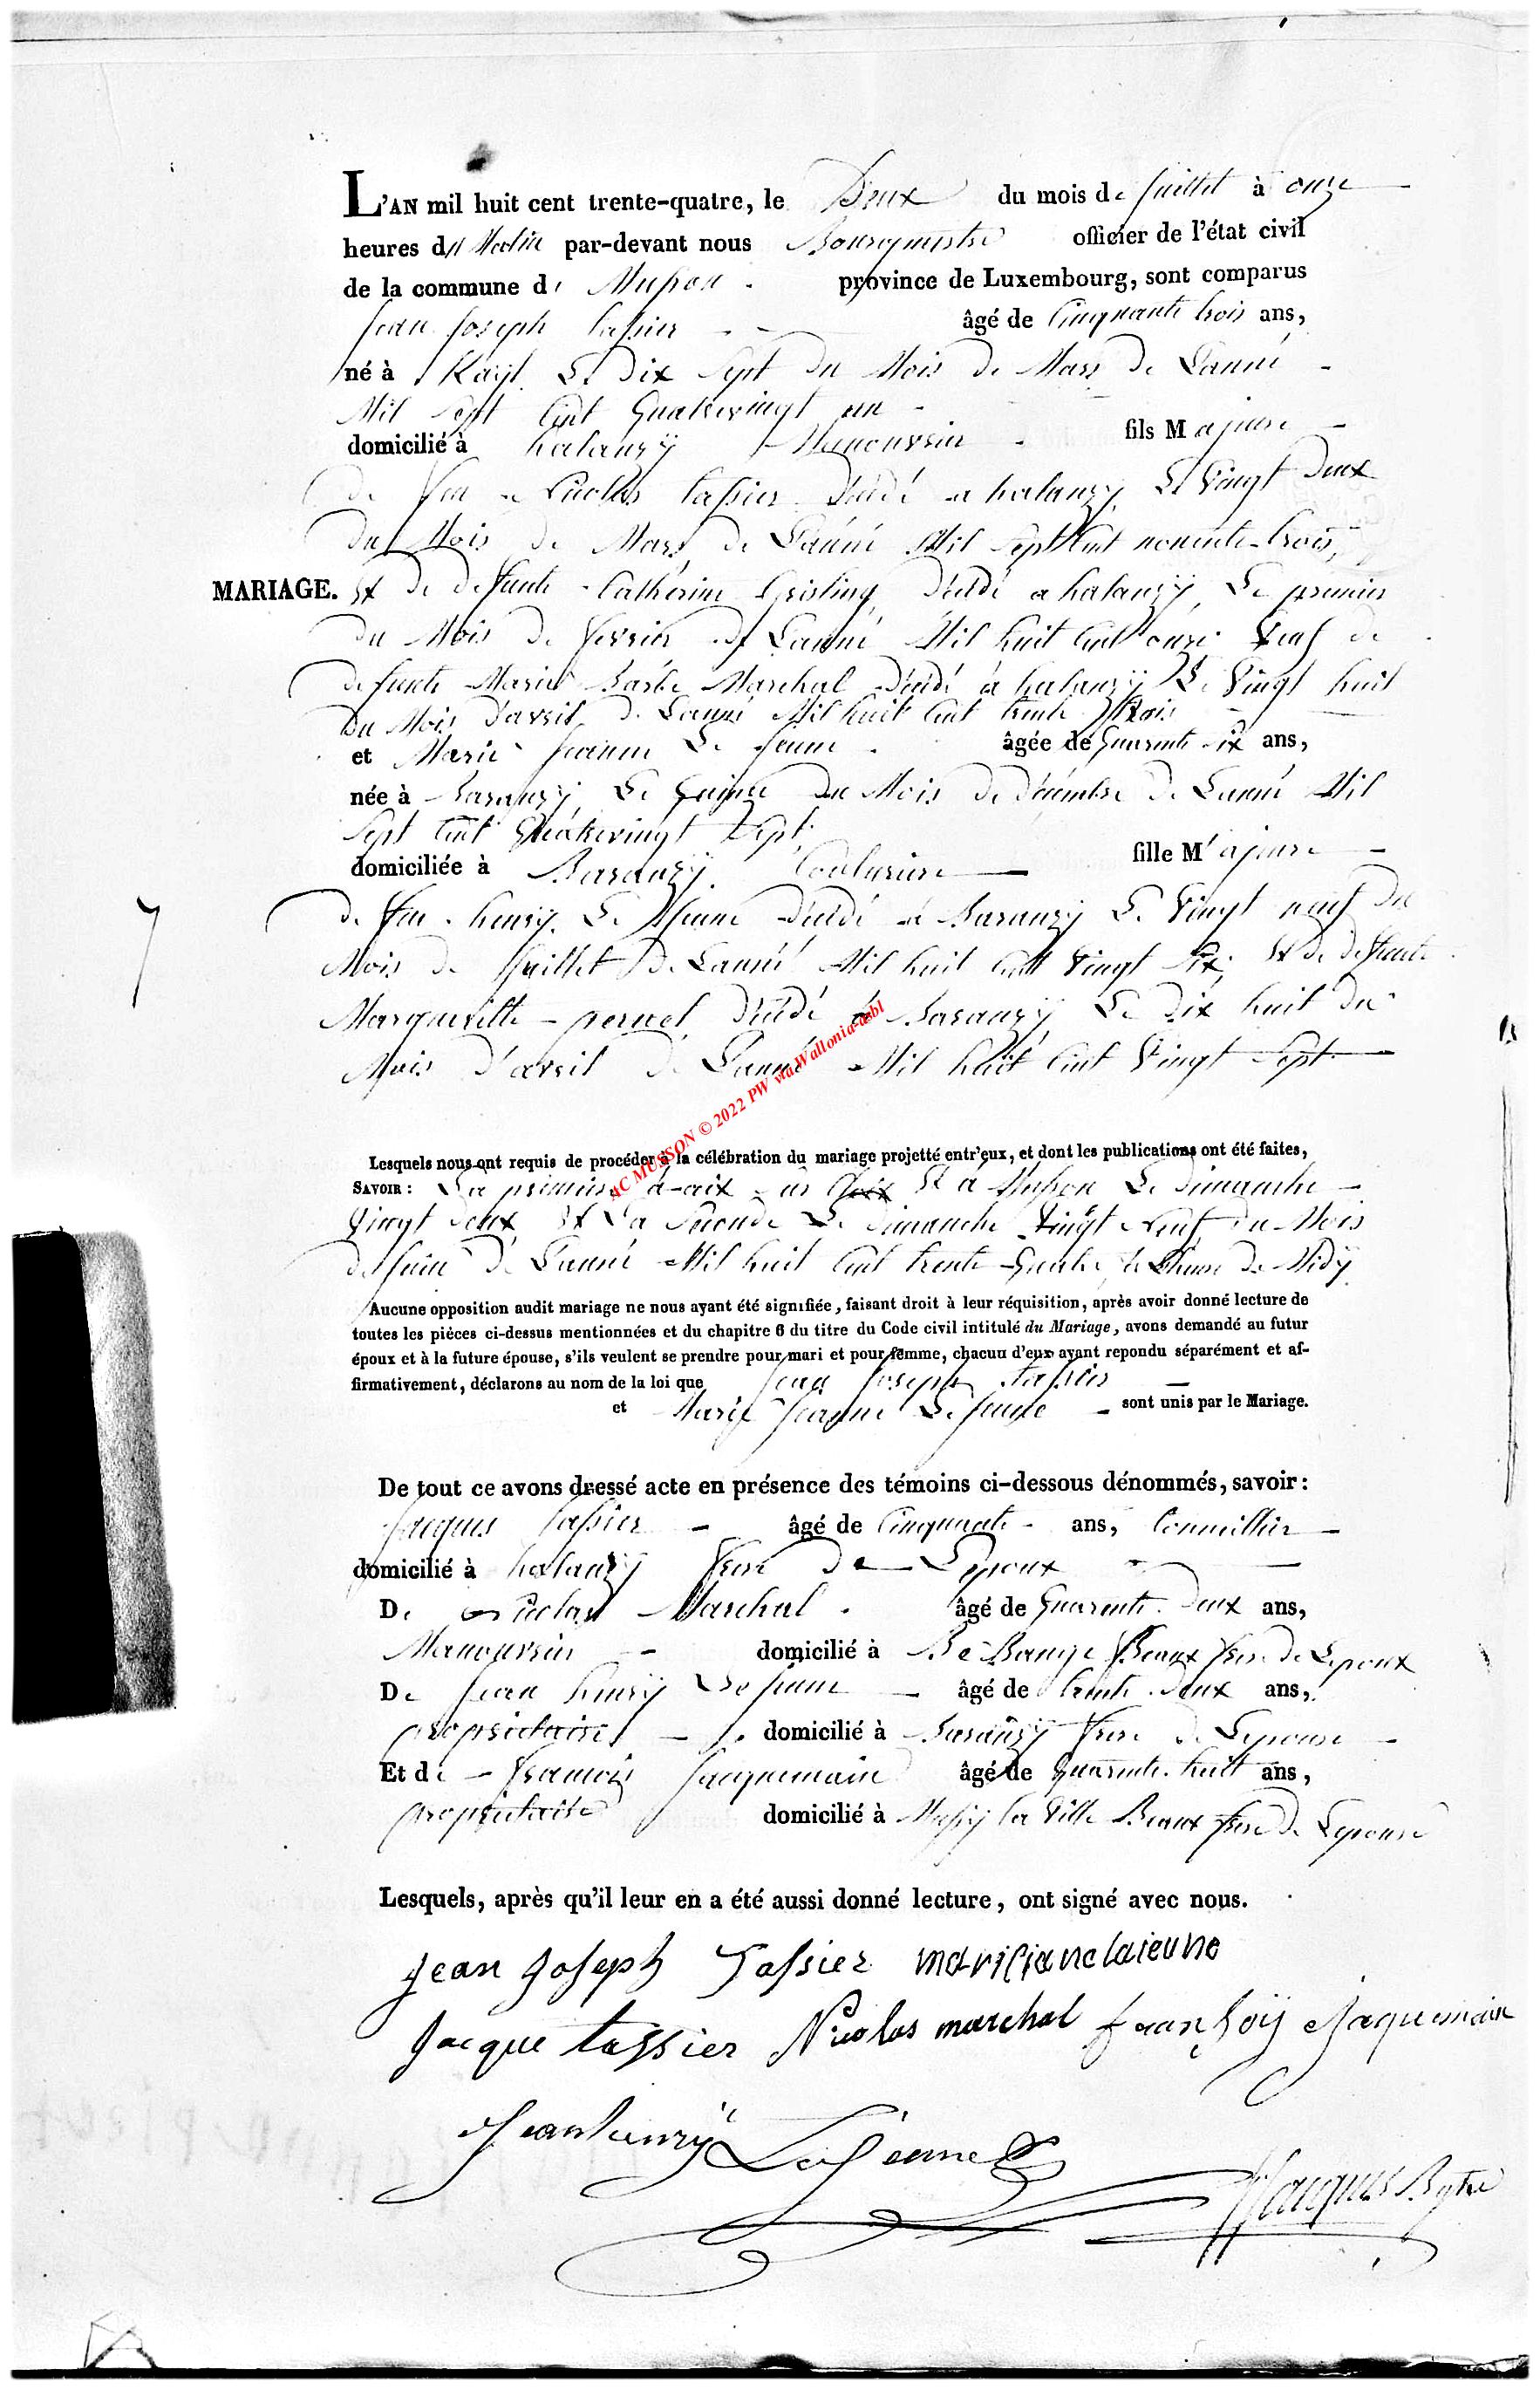 L'AN mil huit cent trente-quatre, le Deux du mois de juillet à onze
heures du Matin par-devant nous Bourguestre officier de l'état civil
de la commune de Musson . province de Luxembourg, sont comparus
jean joseph tassier âgé de Cinquante trois ans,
né à Kayl Le Dix Sept Du Mois De Mars De Lanné
Mil Sept Cent Quatrevingt un
domicilié à halanzÿ Manouvrier fils Majeure
De feu Nicolas tassier Décédé a halanzÿ Le Vingt Deux
Du Mois De Mars De Lanné Mil Sept Cent nonente-trois,
MARIAGE. Et De Defunte Catherine Décédé a halanzÿ Le premier
Du Mois De fevrier De Lanné Mil huit Cent onze Veuf De
Defunte Marie Barbe Marchal Décédé à halanzÿ Le Vingt huit
Du Mois D'avril De Lanné Mil huit Cent trente trois
et Marie jeanne Le jeune . âgée de Quarente Six ans,
née à Baranzÿ Le Quinze Du Mois De Décembre De Lanné Mil
Sept Cent Quatrevingt Sept
domiciliée à Baranzÿ Couturiere fille Majeure
De feu henrÿ Le jeune Décédé à Baranzÿ Le Vingt neuf Du
Mois De juillet De Lanné Mil huit Cent Vingt Six, Et De Defunte
Margueritte pernel Décédé à Baranzÿ Le Dix huit Du
Mois D'avril De Lanné Mil huit Cent Vingt Sept
AC MUSSON © 2022 PW via Wallonia-asbl
Lesquels nous ont requis de procéder à la célébration du mariage projetté entr'eux, et dont les publications ont été faites,
SAVOIR : La premiere à aix Et à Musson Le Dimanche
Vingt Deux Et La Seconde Le Dimanche Vingt Neuf Du Mois
De juin De Lanné Mil huit Cent trente Quatre heure De Midÿ
Aucune opposition audit mariage ne nous ayant été signifiée, faisant droit à leur réquisition, après avoir donné lecture de
toutes les pièces ci-dessus mentionnées et du chapitre 6 du titre du Code civil intitulé du Mariage, avons demandé au futur
époux et à la future épouse, s'ils veulent se prendre pour mari et pour femme, chacun d'eux ayant repondu séparément et af-
firmativement, déclarons au nom de la loi que jean joseph tassier
et Marie jeanne Le jeune sont unis par le Mariage.
De tout ce avons dressé acte en présence des témoins ci-dessous dénommés, savoir :
jacques tassier âgé de Cinquante ans,
domicilié à halanzÿ frere De Lepoux
De Nicolas Marchal . âgé de Quarente Deux ans,
Manouvrier domicilié à Beaux frere De Lepoux
De jean henrÿ Le jeune âgé de trente Deux ans,
propriétaire domicilié à Baranzÿ frere De Lepouse
Et de francois jacquemain âgé de Quarente huit ans,
propriétaire domicilié à Mussÿ la Ville Beaux frere De Lepouse
Lesquels, après qu'il leur en a été aussi donné lecture, ont signé avec nous.
jean joseph Tassier mariejanelaieune
Jacque tassier Nicolas marchal françoÿ jaquemain
jeanhenrÿ Lejeune